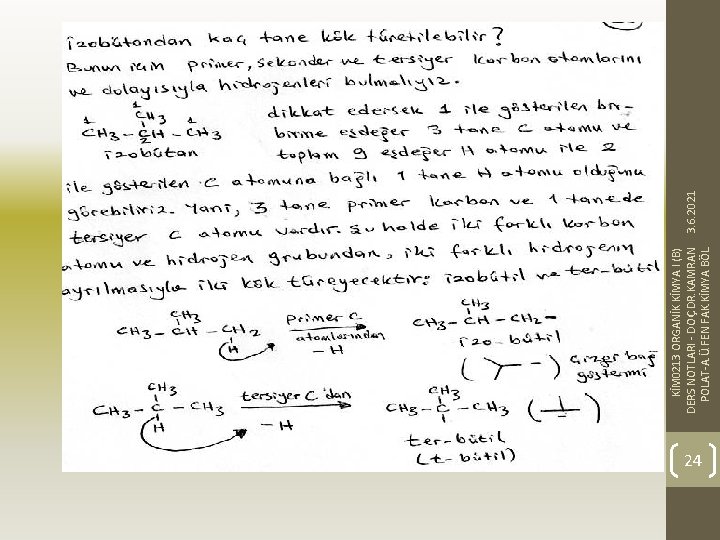 İzobütandan kaç tane kök türetilebilir?
Bunun için primer, sekonder ve tersiyer karbon atomlarını
ve dolayısıyla hidrojenleri bulmalıyız.
1
CH3
1 1
CH3 - CH - CH3
2
izobütan
dikkat edersek 1 ile gösterilen bir-
birine eşdeğer 3 tane C atomu ve
toplam 9 eşdeğer H atomu ile 2
ile gösterilen C atomuna bağlı 1 tane H atomu olduğunu
görebiliriz. Yani, 3 tane primer karbon ve 1 tanede
tersiyer C atomu vardır. Şu halde iki farklı karbon
atomu ve hidrojen grubundan, iki farklı hidrojenin
ayrılmasıyla iki kök türeyecektir: izobütil ve ter-bütil
CH3
CH3 - CH - CH2
H
Primer C
atomlarından
- H
CH3
CH3 - CH - CH2 -
izo-bütil
Çizgi bağ
gösterimi
CH3
CH3 - C - CH3
H
tersiyer C'dan
- H
CH3
CH3 - C - CH3
ter-bütil
(t-bütil)
KİM0213 ORGANİK KİMYA I (B)
DERS NOTLARI - DOÇ.DR.KAMRAN
POLAT-A.Ü.FEN FAK.KİMYA BÖL
3.6.2021
24